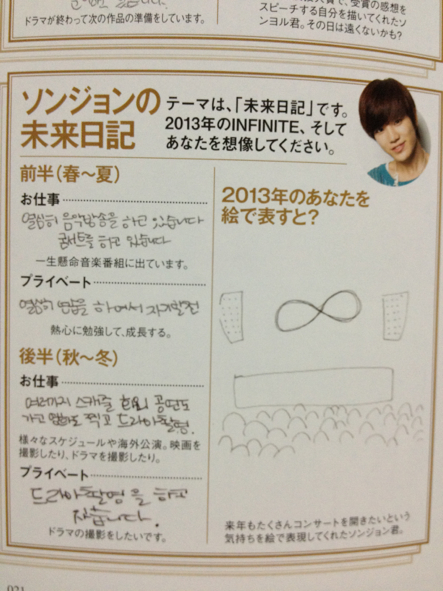 ドラマが終わって次の作品の準備をしています。
受賞の感想を
スピーチする自分を描いてくれたソ
ンヨル君。その日は遠くないかも?
ソンジョンの
未来日記
テーマは、「未来日記」です。
2013年のINFINITE、そして
あなたを想像してください。
前半(春〜夏)
お仕事
열심히 음악방송을 하고 있습니다
콘서트를 하고 있습니다
一生懸命音楽番組に出ています。
プライベート
열심히 하여서 자기발전
熱心に勉強して、成長する。
後半(秋〜冬)
お仕事
여러가지 스케줄 해외 공연도
가고 영화도 찍고 드라마촬영.
様々なスケジュールや海外公演。映画を
撮影したり、ドラマを撮影したり。
プライベート
드라마촬영을 하고
싶습니다.
ドラマの撮影をしたいです。
2013年のあなたを
絵で表すと?
来年もたくさんコンサートを開きたいという
気持ちを絵で表現してくれたソンジョン君。
021